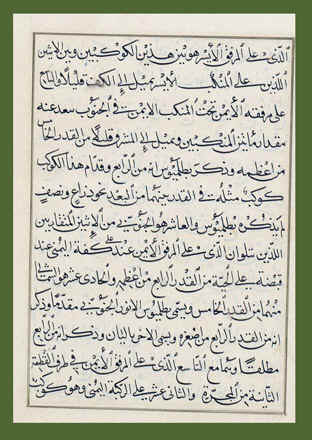 الذى على المرفق الايسر هو بين هذين الكوكبين وبين الاثنين
اللذين على المنكب الايسر يميل الى قليلا والتاسع
على مرفقه الايمن تحت المنكب الايمن فى الجنوب بعده عنه
مقدار ما بين المنكبين ويميل الى المشرق قليلا من القدر الخامس
من اعظمه وذكر بطلميوس انه من الرابع وقدام هذا الكوكب
كوكب مثله فى القدر بينهما من البعد نحو ذراع ونصف
لم يذكره بطلميوس والعاشر هو الجنوبى من الاثنين المتقاربين
اللذين يتلوان الذى على المرفق الايمن عند كفه اليمنى عند
قبضته على الحية من القدر الرابع من اعظمه والحادى عشر هو الشمالى
منهما من القدر الخامس ويسمى بطلميوس الانور الجنوبى متقدما وذكر
انه من القدر الرابع من اصغره ويسمى الاخر التالى وذكر انه من الرابع
مطلقا ومع التاسع الذى على المرفق الايمن فى طرف القطعة
الثانية من المجرة والثانى عشر على الركبة اليمنى وهو كوكب